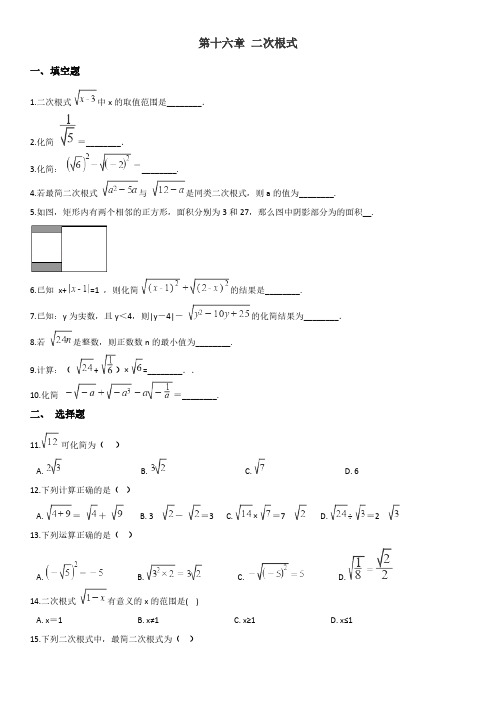 第十六章 二次根式
一、填空题
1.二次根式 √(x-3) 中 x 的取值范围是________.
2.化简 1/√5 =________.
3.化简: (√6)² - √((-2)²) =________.
4.若最简二次根式 √(a²-5a) 与 √(12-a) 是同类二次根式,则 a 的值为________.
5.如图,矩形内有两个相邻的正方形,面积分别为 3 和 27,那么图中阴影部分为的面积__.
6.已知 x+|x-1|=1 ,则化简 √((x-1)²)+√((2-x)²) 的结果是________.
7.已知:y 为实数,且 y<4,则|y-4|- √(y²-10y+25) 的化简结果为________.
8.若 √(24n) 是整数,则正数数 n 的最小值为________.
9.计算:( √24 + √(1/6) )× √6 =________..
10.化简 -√(-a)+√(-a³)-a√(-1/a) =________.
二、 选择题
11.√12 可化简为( )
A. 2√3 B. 3√2 C. √7 D. 6
12.下列计算正确的是( )
A. √(4+9) = √4 + √9 B. 3 √2 - √2 =3 C. √14 × √7 =7 √2 D. √24 ÷ √3 =2 √3
13.下列运算正确的是( )
A. (-√5)²=-5 B. √(3²×2)=3√2 C. -√((-5)²)=5 D. √(1/8)=√2/2
14.二次根式 √(1-x) 有意义的 x 的范围是( )
A. x=1 B. x≠1 C. x≥1 D. x≤1
15.下列二次根式中,最简二次根式为( )